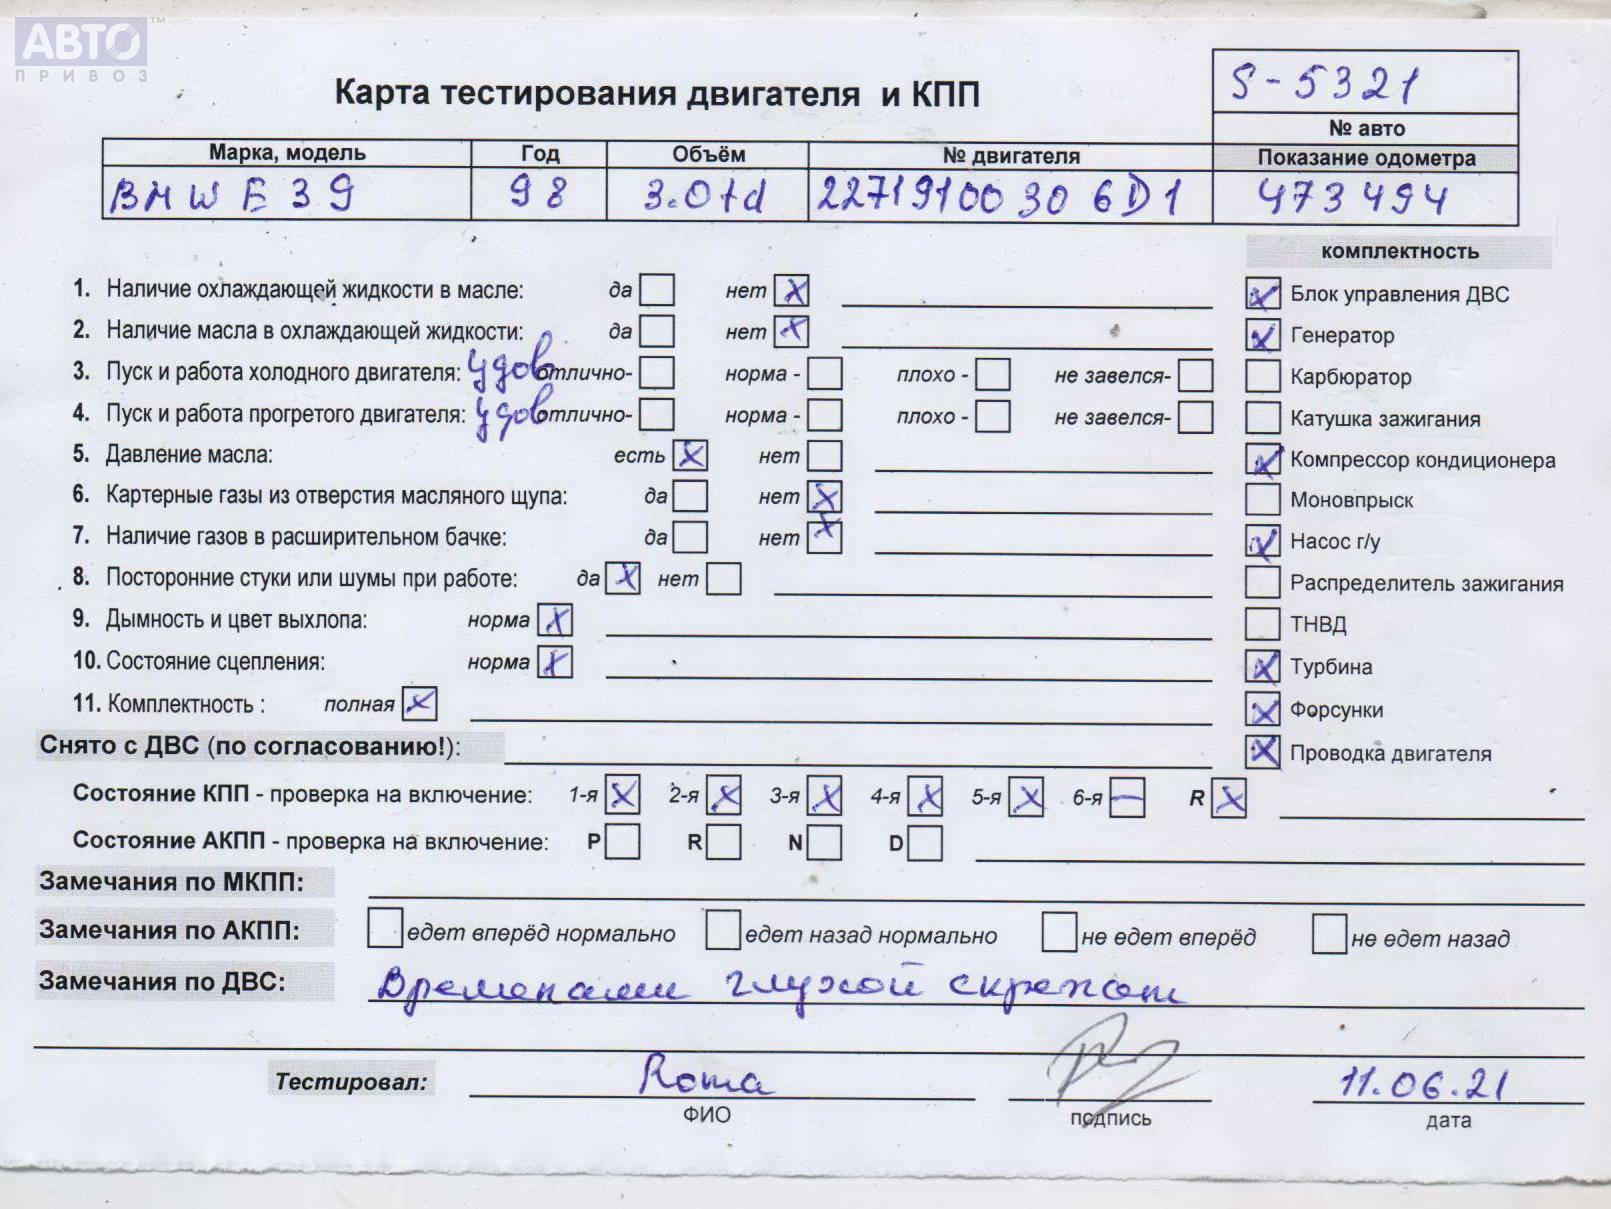 АВТО™
ПРИВОЗ
Карта тестирования двигателя и КПП
S-5321
№ авто
Марка, модель Год Объём № двигателя Показание одометра
BMW E39 98 3.0td 22719100 30 6D1 473494
комплектность
1. Наличие охлаждающей жидкости в масле: да нет X
Блок управления ДВС
2. Наличие масла в охлаждающей жидкости: да нет X
Генератор
3. Пуск и работа холодного двигателя: удов отлично- норма - плохо - не завелся-
Карбюратор
4. Пуск и работа прогретого двигателя: удов отлично- норма - плохо - не завелся-
Катушка зажигания
5. Давление масла: есть X нет
Компрессор кондиционера
6. Картерные газы из отверстия масляного щупа: да нет X
Моновпрыск
7. Наличие газов в расширительном бачке: да нет X
Насос г/у
8. Посторонние стуки или шумы при работе: да X нет
Распределитель зажигания
9. Дымность и цвет выхлопа: норма X
ТНВД
10. Состояние сцепления: норма X
Турбина
11. Комплектность : полная X
Форсунки
Снято с ДВС (по согласованию!):
Проводка двигателя
Состояние КПП - проверка на включение: 1-я X 2-я X 3-я X 4-я X 5-я X 6-я — R X
Состояние АКПП - проверка на включение: P R N D
Замечания по МКПП:
Замечания по АКПП: едет вперёд нормально едет назад нормально не едет вперёд не едет назад
Замечания по ДВС: Временами глухой скрежет
Тестировал: Рома 11.06.21
ФИО подпись дата